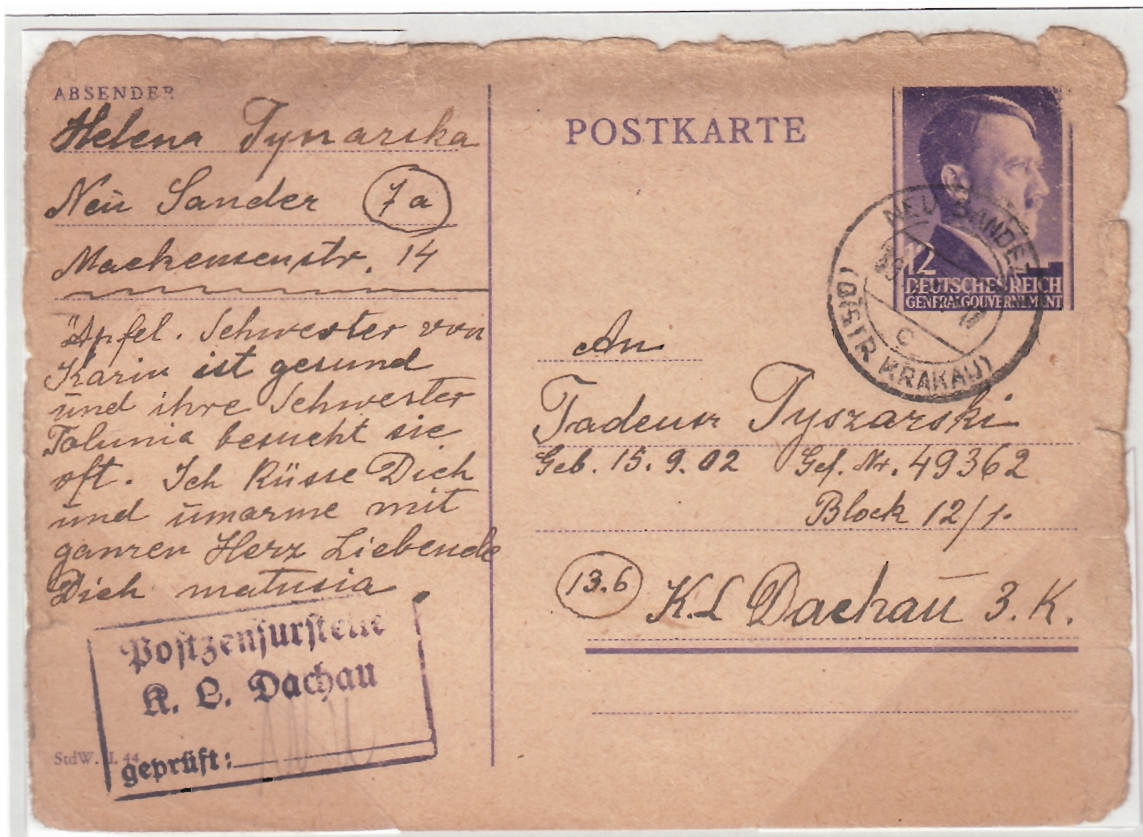 ABSENDER
Helena Tynarska
Neu Sander 7a
Mackensenstr. 14
Äpfel. Schwester von
Karin ist gesund
und ihre Schwester
Tolunia besucht sie
oft. Ich Küsse Dich
und umarme mit
ganzen Herz Liebende
Dich matusia.
Postzensurstelle
K. L. Dachau
geprüft:
StdW. I. 44
POSTKARTE
12
DEUTSCHES REICH
GENERALGOUVERNEMENT
NEU SANDEZ
c
(DISTR KRAKAU)
An
Tadeusz Tyszarski
Geb. 15.9.02 Gef. Nr. 49362
Block 12/1.
13.b K.L Dachau 3. K.